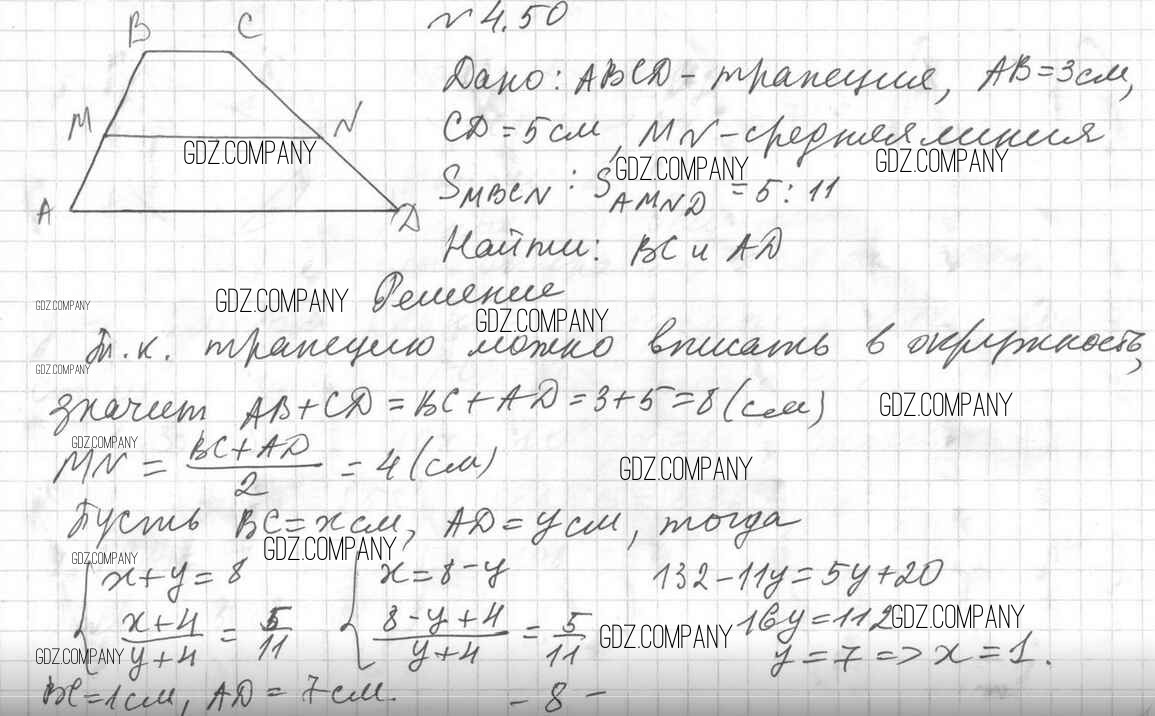 N 4.50
B C
Дано: ABCD - трапеция, AB = 3 см,
M N
CD = 5 см, MN - средняя линия
GDZ.COMPANY GDZ.COMPANY GDZ.COMPANY
S_MBCN : S_AMND = 5 : 11
A D
Найти: BC и AD
GDZ.COMPANY GDZ.COMPANY Решение
GDZ.COMPANY
Т.к. трапецию можно вписать в окружность,
GDZ.COMPANY
значит AB + CD = BC + AD = 3 + 5 = 8 (см)
GDZ.COMPANY
GDZ.COMPANY
MN = (BC + AD)/2 = 4 (см)
GDZ.COMPANY
Пусть BC = x см, AD = y см, тогда
GDZ.COMPANY GDZ.COMPANY
{ x + y = 8 { x = 8 - y 132 - 11y = 5y + 20
(x + 4)/(y + 4) = 5/11 (8 - y + 4)/(y + 4) = 5/11 16y = 112
GDZ.COMPANY GDZ.COMPANY
GDZ.COMPANY
y = 7 => x = 1.
BC = 1 см, AD = 7 см.
- 8 -